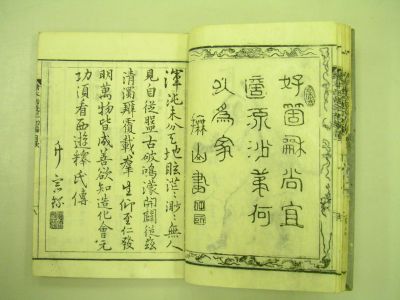 好箇龢尚宜
沙葉何
以為家
山書
渾沌未分天地眩茫々渺々無人
見自從盤古破鴻濛開闢從茲
清濁覆載羣生仰至仁發
明萬物皆成善欲知造化會元
功須看西遊釋氏傳